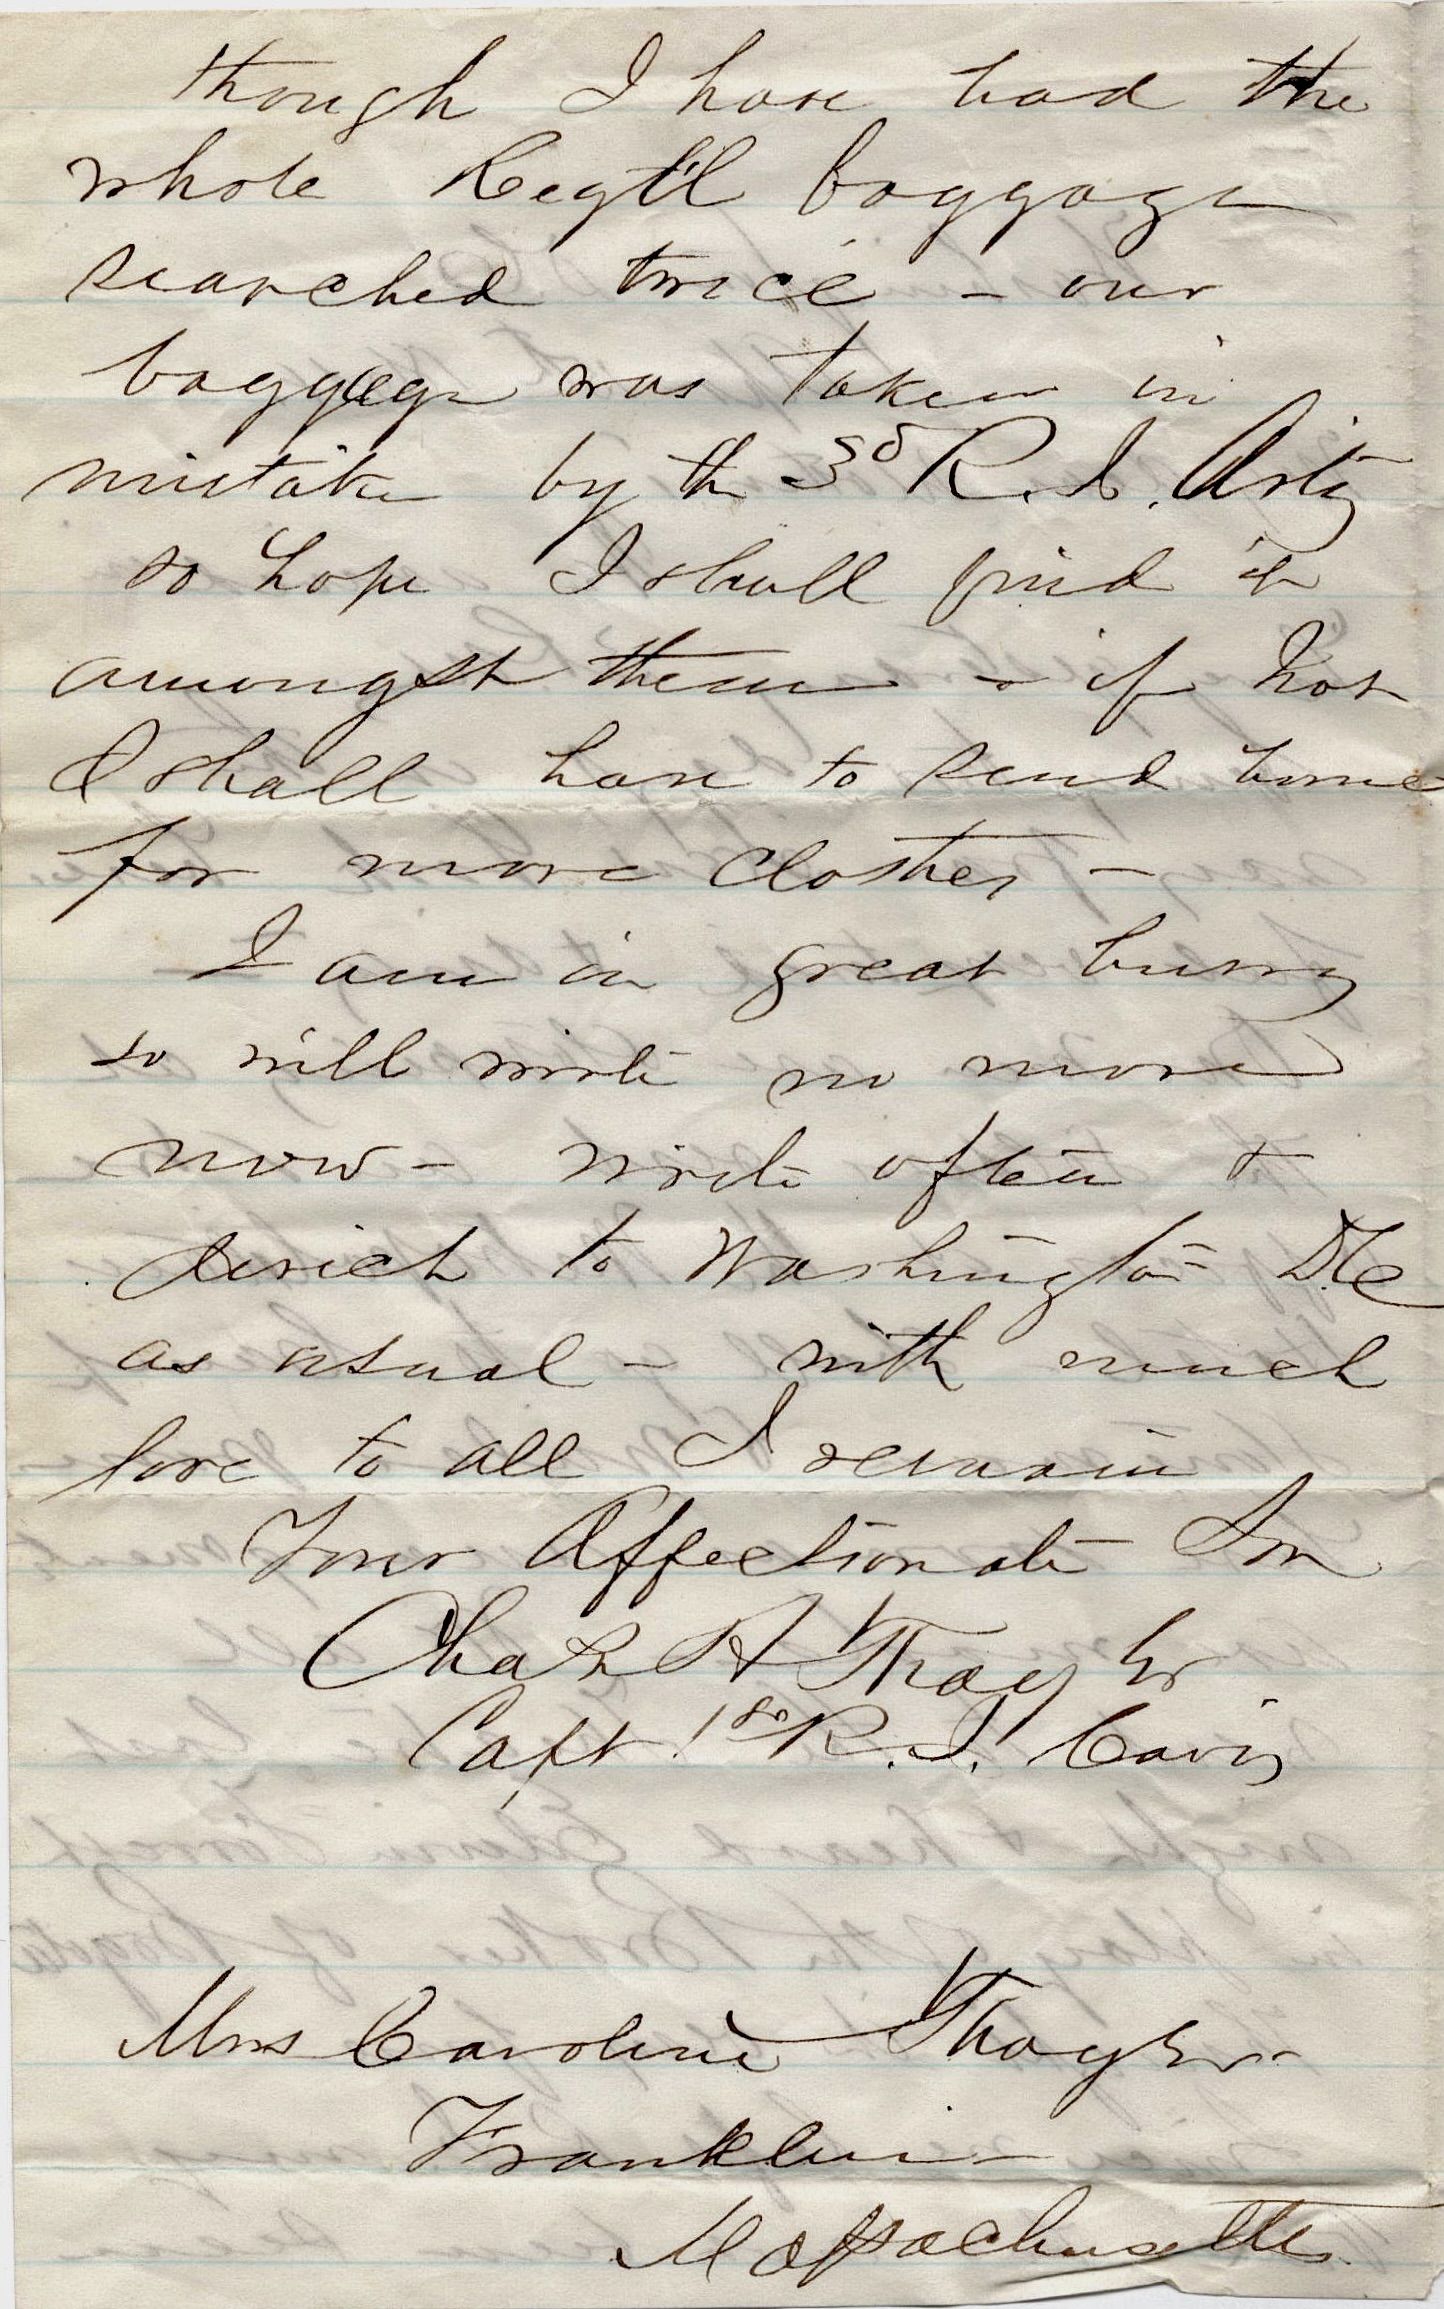 though I have had the
whole Regt'l baggage
searched twice - our
baggage was taken in
mistake by the 3d R. I. Arty
so hope I shall find it
amongst them - if not
I shall have to send home
for more clothes -
I am in great hurry
so will write no more
now - write often &
direct to Washington D.C.
as usual - with much
love to all I remain
Your Affectionate Son
Chas A Thayer
Capt 1st R. I. Cavy
Mrs Caroline Thayer
Franklin
Massachusetts